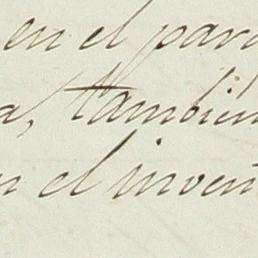 en el para
a, tambien
n el inven